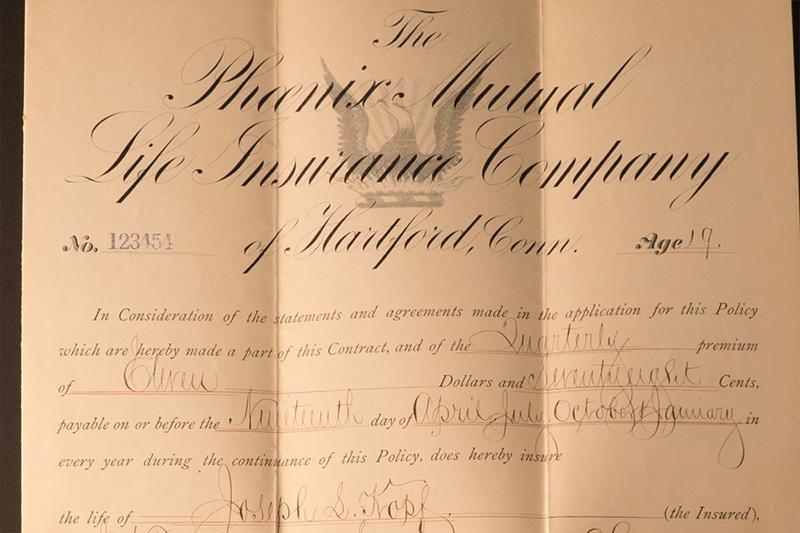 The
Phœnix Mutual
Life Insurance Company
No. 123454 of Hartford, Conn. Age 19.
In Consideration of the statements and agreements made in the application for this Policy
which are hereby made a part of this Contract, and of the Quarterly premium
of Eleven Dollars and Seventy eight Cents,
payable on or before the Nineteenth day of April, July, October & January in
every year during the continuance of this Policy, does hereby insure
the life of Joseph L. Kopf (the Insured),